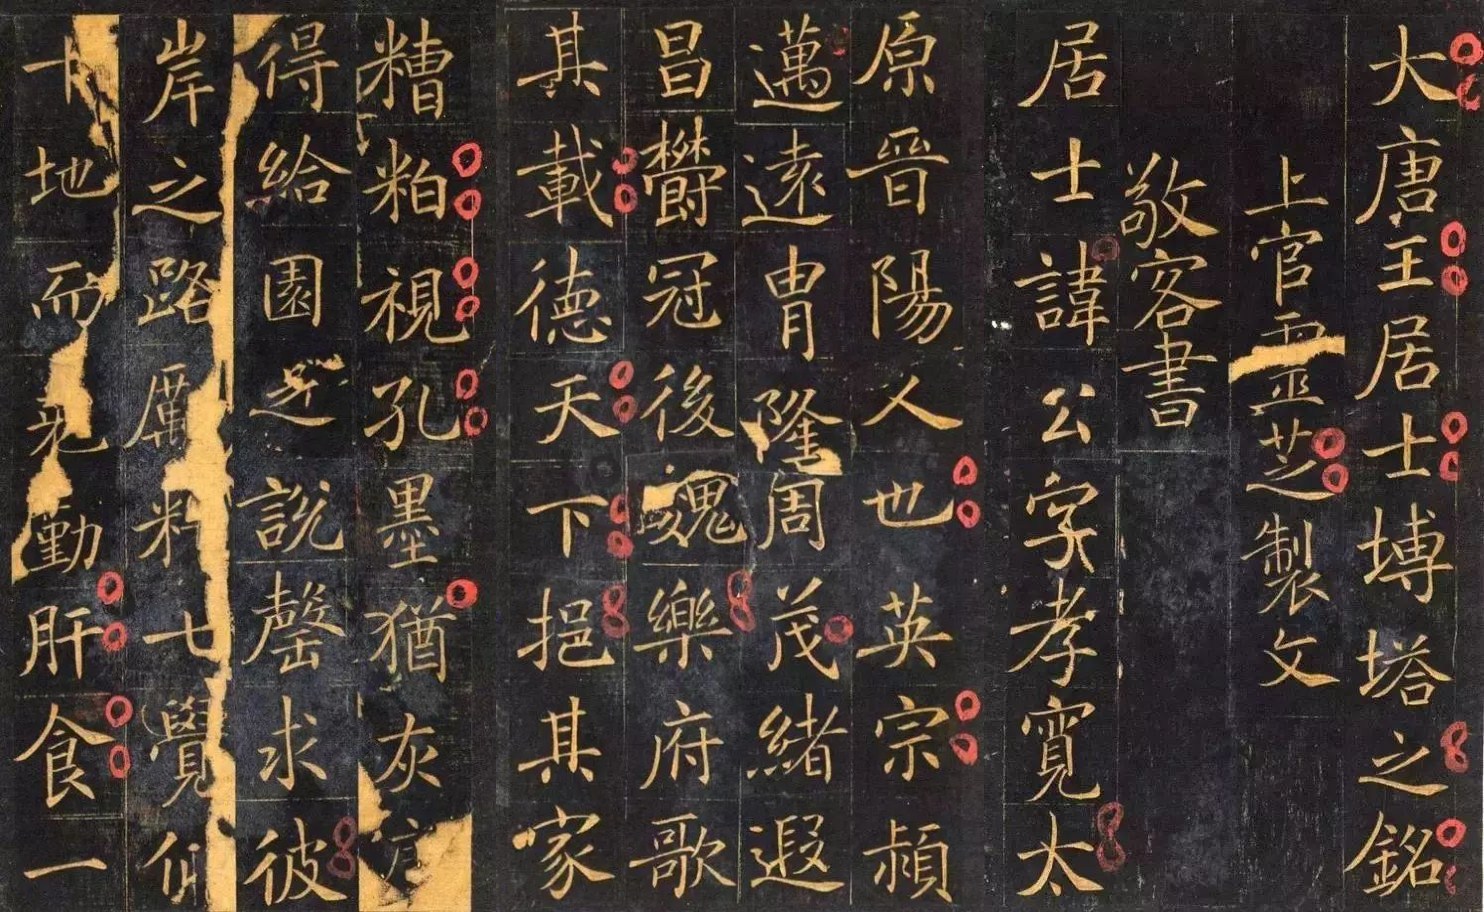 大唐王居士塼塔之銘
上官靈芝製文
敬客書
居士諱公字孝寬太
原晉陽人也英宗穎
邁遠胄隆周茂緒遐
昌欝冠後魏樂府歌
其載德天下挹其家
糟粕視孔墨猶灰
得給園說罄求彼
岸之路厲七覺仰
十地而克勤肝食一